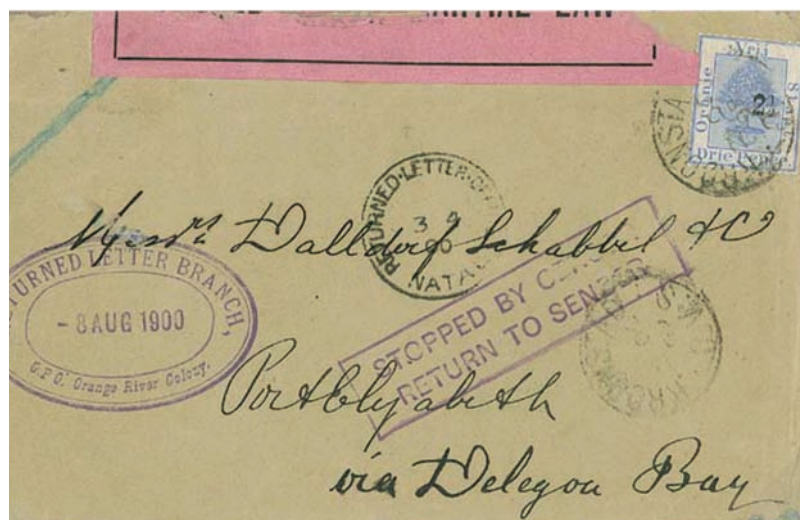 MARTIAL LAW
Oranje
Vrij
Staat
2½
Drie Pence.
KROONSTA
RETURNED·LETTER·OFF
3 9
00
NATA
Messrs Dalldorf Schabbel & Co
RETURNED LETTER BRANCH,
- 8 AUG 1900
G.P.O. Orange River Colony.
STOPPED BY CENSOR
RETURN TO SENDER
Port Elizabeth
via Delegoa Bay